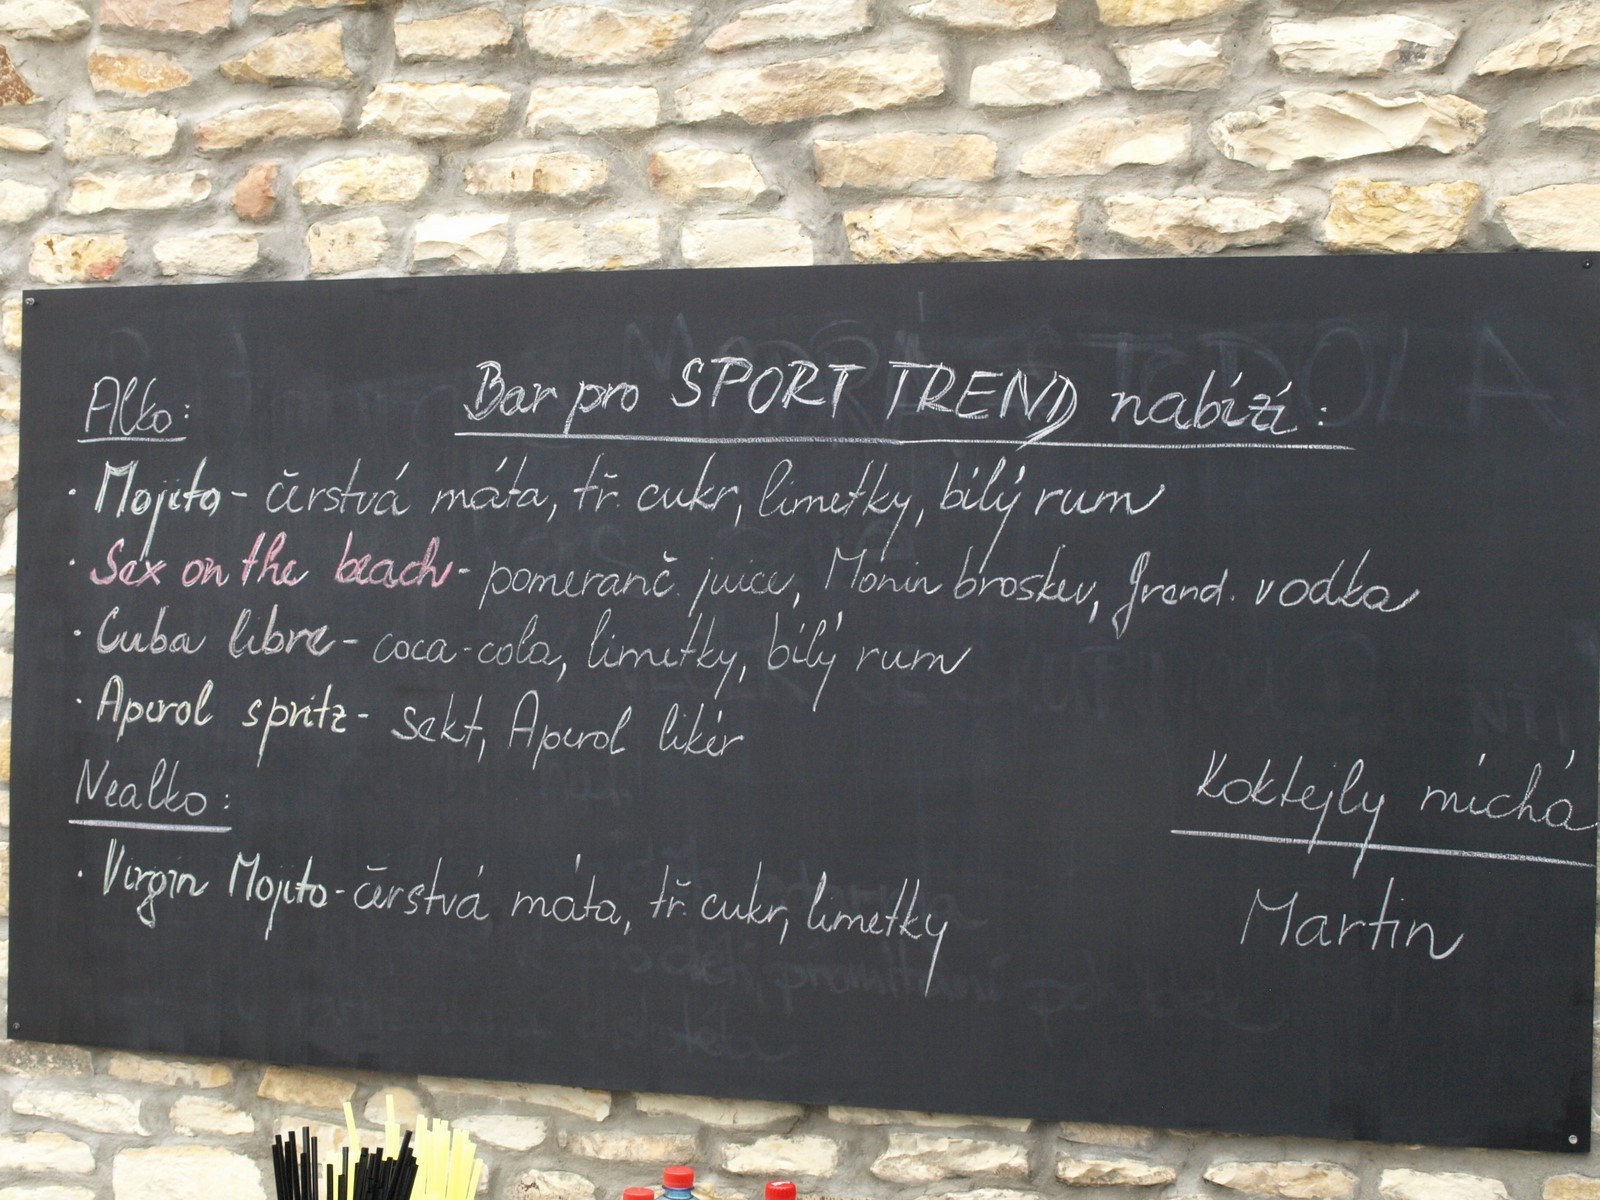 Bar pro SPORT TREND nabízí:
Alko:
· Mojito - čerstvá máta, tř. cukr, limetky, bílý rum
· Sex on the beach - pomeranč. juice, Monin broskev, Grend. vodka
· Cuba libre - coca-cola, limetky, bílý rum
· Aperol spritz - sekt, Aperol likér
Nealko:
· Virgin Mojito - čerstvá máta, tř. cukr, limetky
Koktejly míchá
Martin